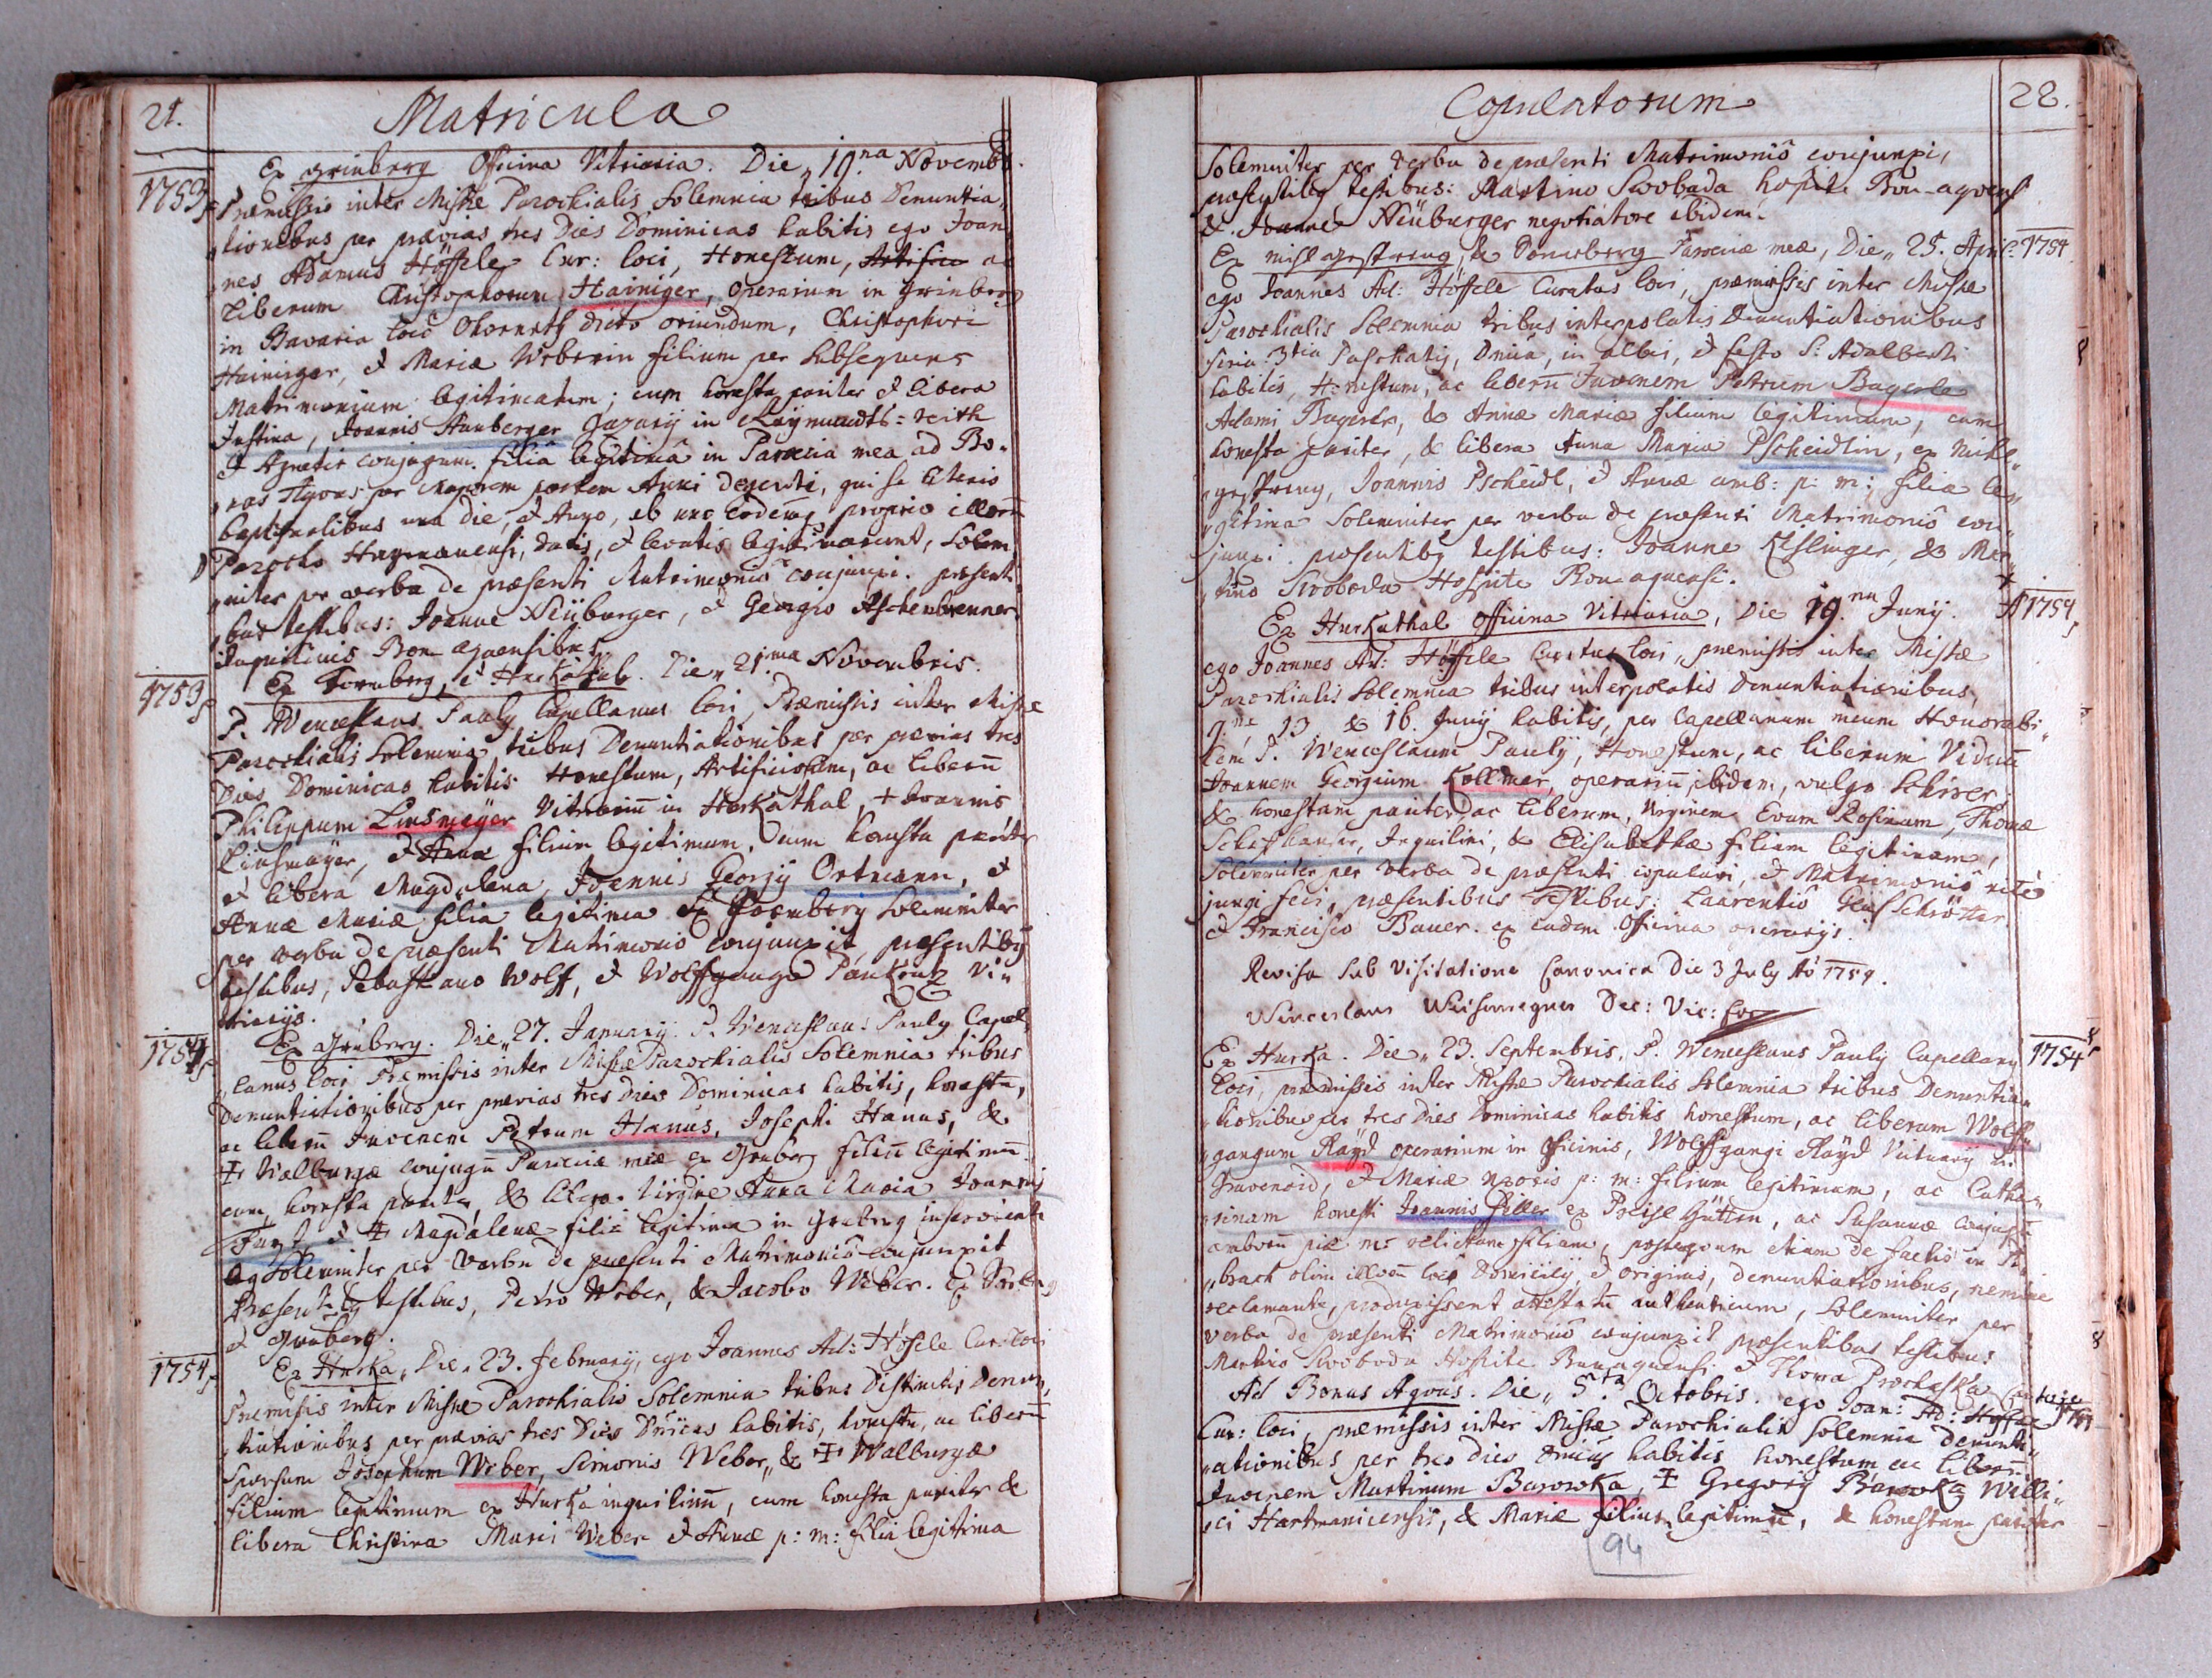 21.
Matricula
1753
Ex Grinberg Officina Vitriaria. Die 19.na Novemb.
Præmissis inter Missæ Parochialis Solemnia tribus Denuntia,
tionibus per prævias tres Dies Dominicas habitis ego Joan
nes Adamus Höffele Cur: loci, Honestum, ac
Liberum Christophorum Hainiger, operarium in Grinberg
in Bavaria loco dicto oriundum, Christophori
Hainiger, & Mariæ Weberin filium per subsequens
Matrimonium legitimatum; cum honesta pariter & libera
Justina, Joannis Hauberger in
& Agnetis conjugum filia legitima in Parœcia mea ad Bo-
nas Aquas per majorem partem Anni degenti, qui se literis
baptismalibus una die, & Anno, ab uno eodemq proprio illorū
Parocho datis, & levatis legitimarunt, Solem
niter per verba de præsenti Matrimonio conjunxi. præsenti
bus testibus: Joanne Neüburger, & Georgio Aschenbrenner
inquilinis Bon aquensibus.
1753
Ex Formberg, & Hurkáthal. Die 21.ma Novembris.
P. Wenceslaus Pauly Capellanus loci, Præmissis inter Missæ
Parochialis Solemnia tribus Denuntiationibus per prævias tres
Dies Dominicas habitis Honestum, Artificiosum, ac Liberū
Philippum Linsmeÿer Vitrariū in Hurkathal, + Joannis
Linsmaÿer, & Annæ filium legitimum, cum honesta pariter
& libera Magdalena, Joannis Georgÿ Ortmann, &
Annæ Mariæ filia legitima Ex Formberg Solemniter
per verba de præsenti Matrimonio conjunxit præsentibq
testibus, Sebastiano Wolff, & Wolffgango Pankratz Vi,,
triarÿs.
1754
Ex Grünberg. Die 27. Januarÿ. P. Wenceslaus Pauly Capel,
lanus loci Præmissis inter Missæ Parochialis Solemnia tribus
Denuntiationibus per prævias tres Dies Dominicas habitis, honestū,
ac liberū Juvenem Petrum Hanus, Josephi Hanus, &
+ Walburgæ conjugū Parœciæ meæ ex Grünberg filiū legitimū.
cum honesta pariter, & libera Virgine Anna Maria Joannis
Fürst & + Magdalenæ filiâ legitima in Grünberg inserviente
Solemniter per verba de præsenti Matrimonio conjunxit
Præsentibq testibus, Petro Weber, & Jacobo Weber. Ex
& Grünberg.
1754
Ex Hurka, Die 23. February, ego Joannes Ad: Höfele Cur: loci
Præmissis inter Missæ Parochialis Solemnia tribus Distinctis Denun,
tiationibus per prævias tres Dies Dnicas habitis, honestū, ac liberū
Sponsum Josephum Weber, Simonis Weber, & + Walburgæ
filium legitimum ex Hurka inquilinū, cum honesta pariter &
libera Christina Marci Weber & Annæ p: m: filia legitima
Copulatorum
22.
Solemniter per verba de præsenti Matrimoniô conjunxi,
præsentibq testibus: Martino Swoboda hospite Bon-aquens
& Joanne Neüburger negotiatore ibidem.
1754
Ex & Dornberg Parœciæ meæ, Die 25. April
ego Joannes Ad: Höffele Curatus loci, præmissis inter Missæ
Parochialis Solemnia tribus interpolatis Denuntiationibus
feria 3tia Paschatis, Dnica, in albis, & festo S: Adalberti
habitis, Honestum, ac liberū Juvenem Petrum Bayerle
Adami Bayerle, & Annæ Mariæ filium legitimum, cum
honesta pariter, & libera Anna Maria Pscheidlin, ex
Joannis Pscheidl, & Annæ amb: p: m: filia le,,
gitima Solemniter per verba de præsenti Matrimoniô con,,
junxi præsentibq testibus: Joanne Kislinger, & Mar,,
tino Swoboda Hospite Bon-aquensi.
1754
Ex Hurkathal Officina Vitriaria, Die 19.na Junÿ.
ego Joannes Ad: Höffele Curatus loci, præmissis inter Missæ
Parochialis Solemnia tribus interpolatis Denuntiationibus,
9.ne, 13, & 16. Junÿ habitis, per Capellanum meum Honorabi,,
lem P. Wenceslaum Paulÿ, Honestum, ac liberum Viduū
Joannem Georgium Kollmer, operariū ibidem, vulgo Schirer,
& honestam pariter, ac liberam, Virginem Evam Rosinam, Thomæ
Schafhauser, Inquilini, & Elisabethæ filiam legitimam,
Solemniter per verba de præsenti copulavi, & Matrimoniô ritè
jungi feci, præsentibus Testibus: Laurentiô Schrötter
& Francisco Bauer. ex eadem Officina operarÿs.
Revisa Sub Visitatione Canonica Die 3 July Aô 1754.
Wenceslaus Dec: Vic: For
1754
Ex Hurka. Die 23. Septembris, P. Wenceslaus Pauly Capellang
loci, præmissis inter Missæ Parochialis Solemnia tribus Denuntia,,
tionibus per tres Dies Dominicas habitis honestum, ac liberum Wolff,,
gangum Raÿd operarium in Officinis, Wolffgangi Raÿd
& Mariæ uxoris p: m: filium legitimum, ac Catha,,
rinam honesti Joannis Piller ex Hütten, ac Susannæ conjugū
amborū piæ m: relictam filiam, postquam etiam de facto in
brach olim illorū loco Domicilÿ, & originis, denuntiationibus, nemine
reclamante, produxissent attestatū authenticum, Solemniter per
verba de præsenti Matrimoniô conjunxit præsentibus testibus
Martino Swoboda Hospite Bonaquensi & Thoma
Ad Bonas Aquas. Die 5.ta Octobris. ego Joan: Ad: Höffele
Cur: loci, præmissis inter Missæ Parochialis Solemnia denunti,,
ationibus per tres dies Dnicas habitis honestum ac liberū
Juvenem Martinum Barowka, + Gregorÿ Barowka Willi,,
ci Hartmanicensis, & Mariæ filium legitimū, & honestam pariter
94